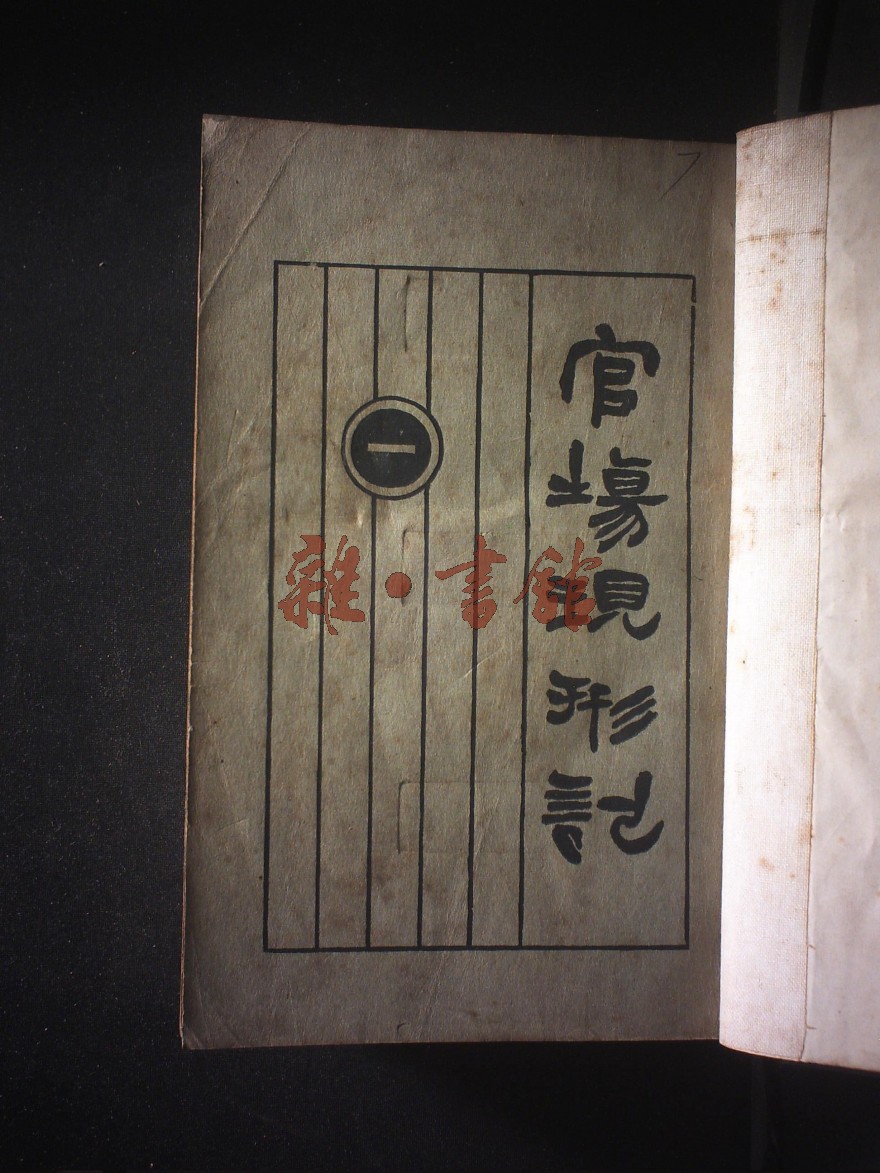 官場現形記
一
雜·書館